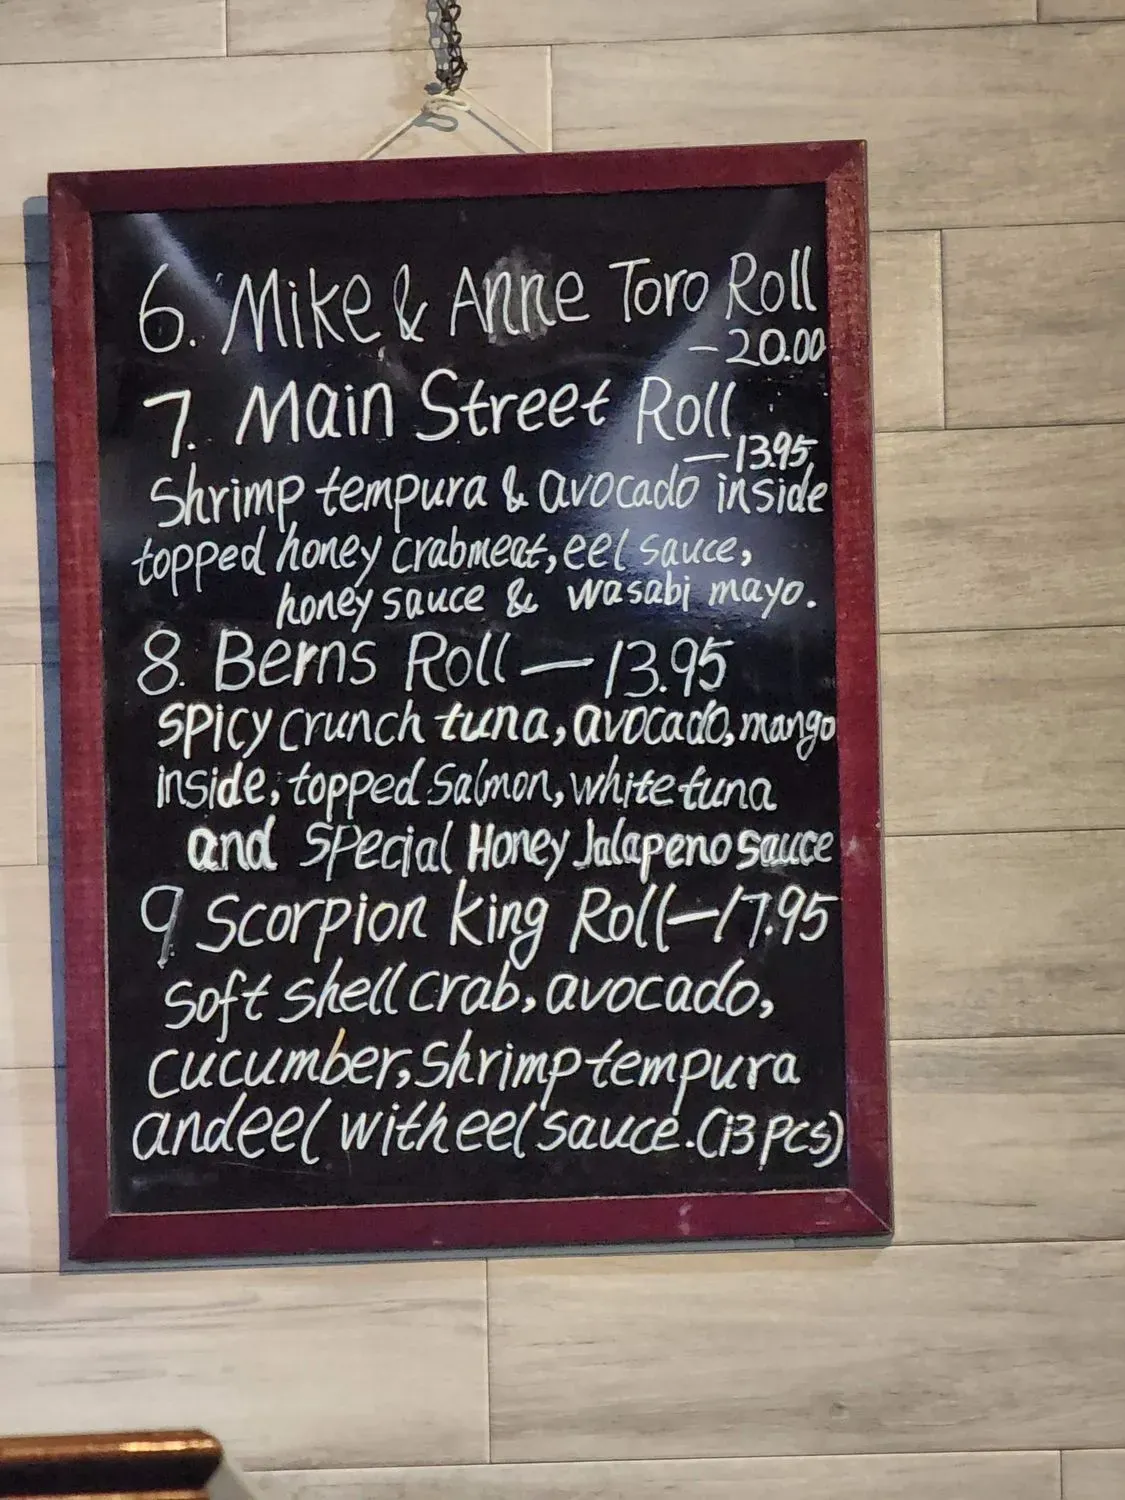 6. Mike & Anne Toro Roll
- 20.00
7. Main Street Roll
- 13.95
Shrimp tempura & avocado inside
topped honey crabmeat, eel sauce,
honey sauce & wasabi mayo.
8. Berns Roll - 13.95
Spicy crunch tuna, avocado, mango
inside, topped Salmon, white tuna
and special Honey Jalapeno sauce
9 Scorpion king Roll - 17.95
Soft shell crab, avocado,
cucumber, Shrimp tempura
and eel with eel sauce. (13 pcs)